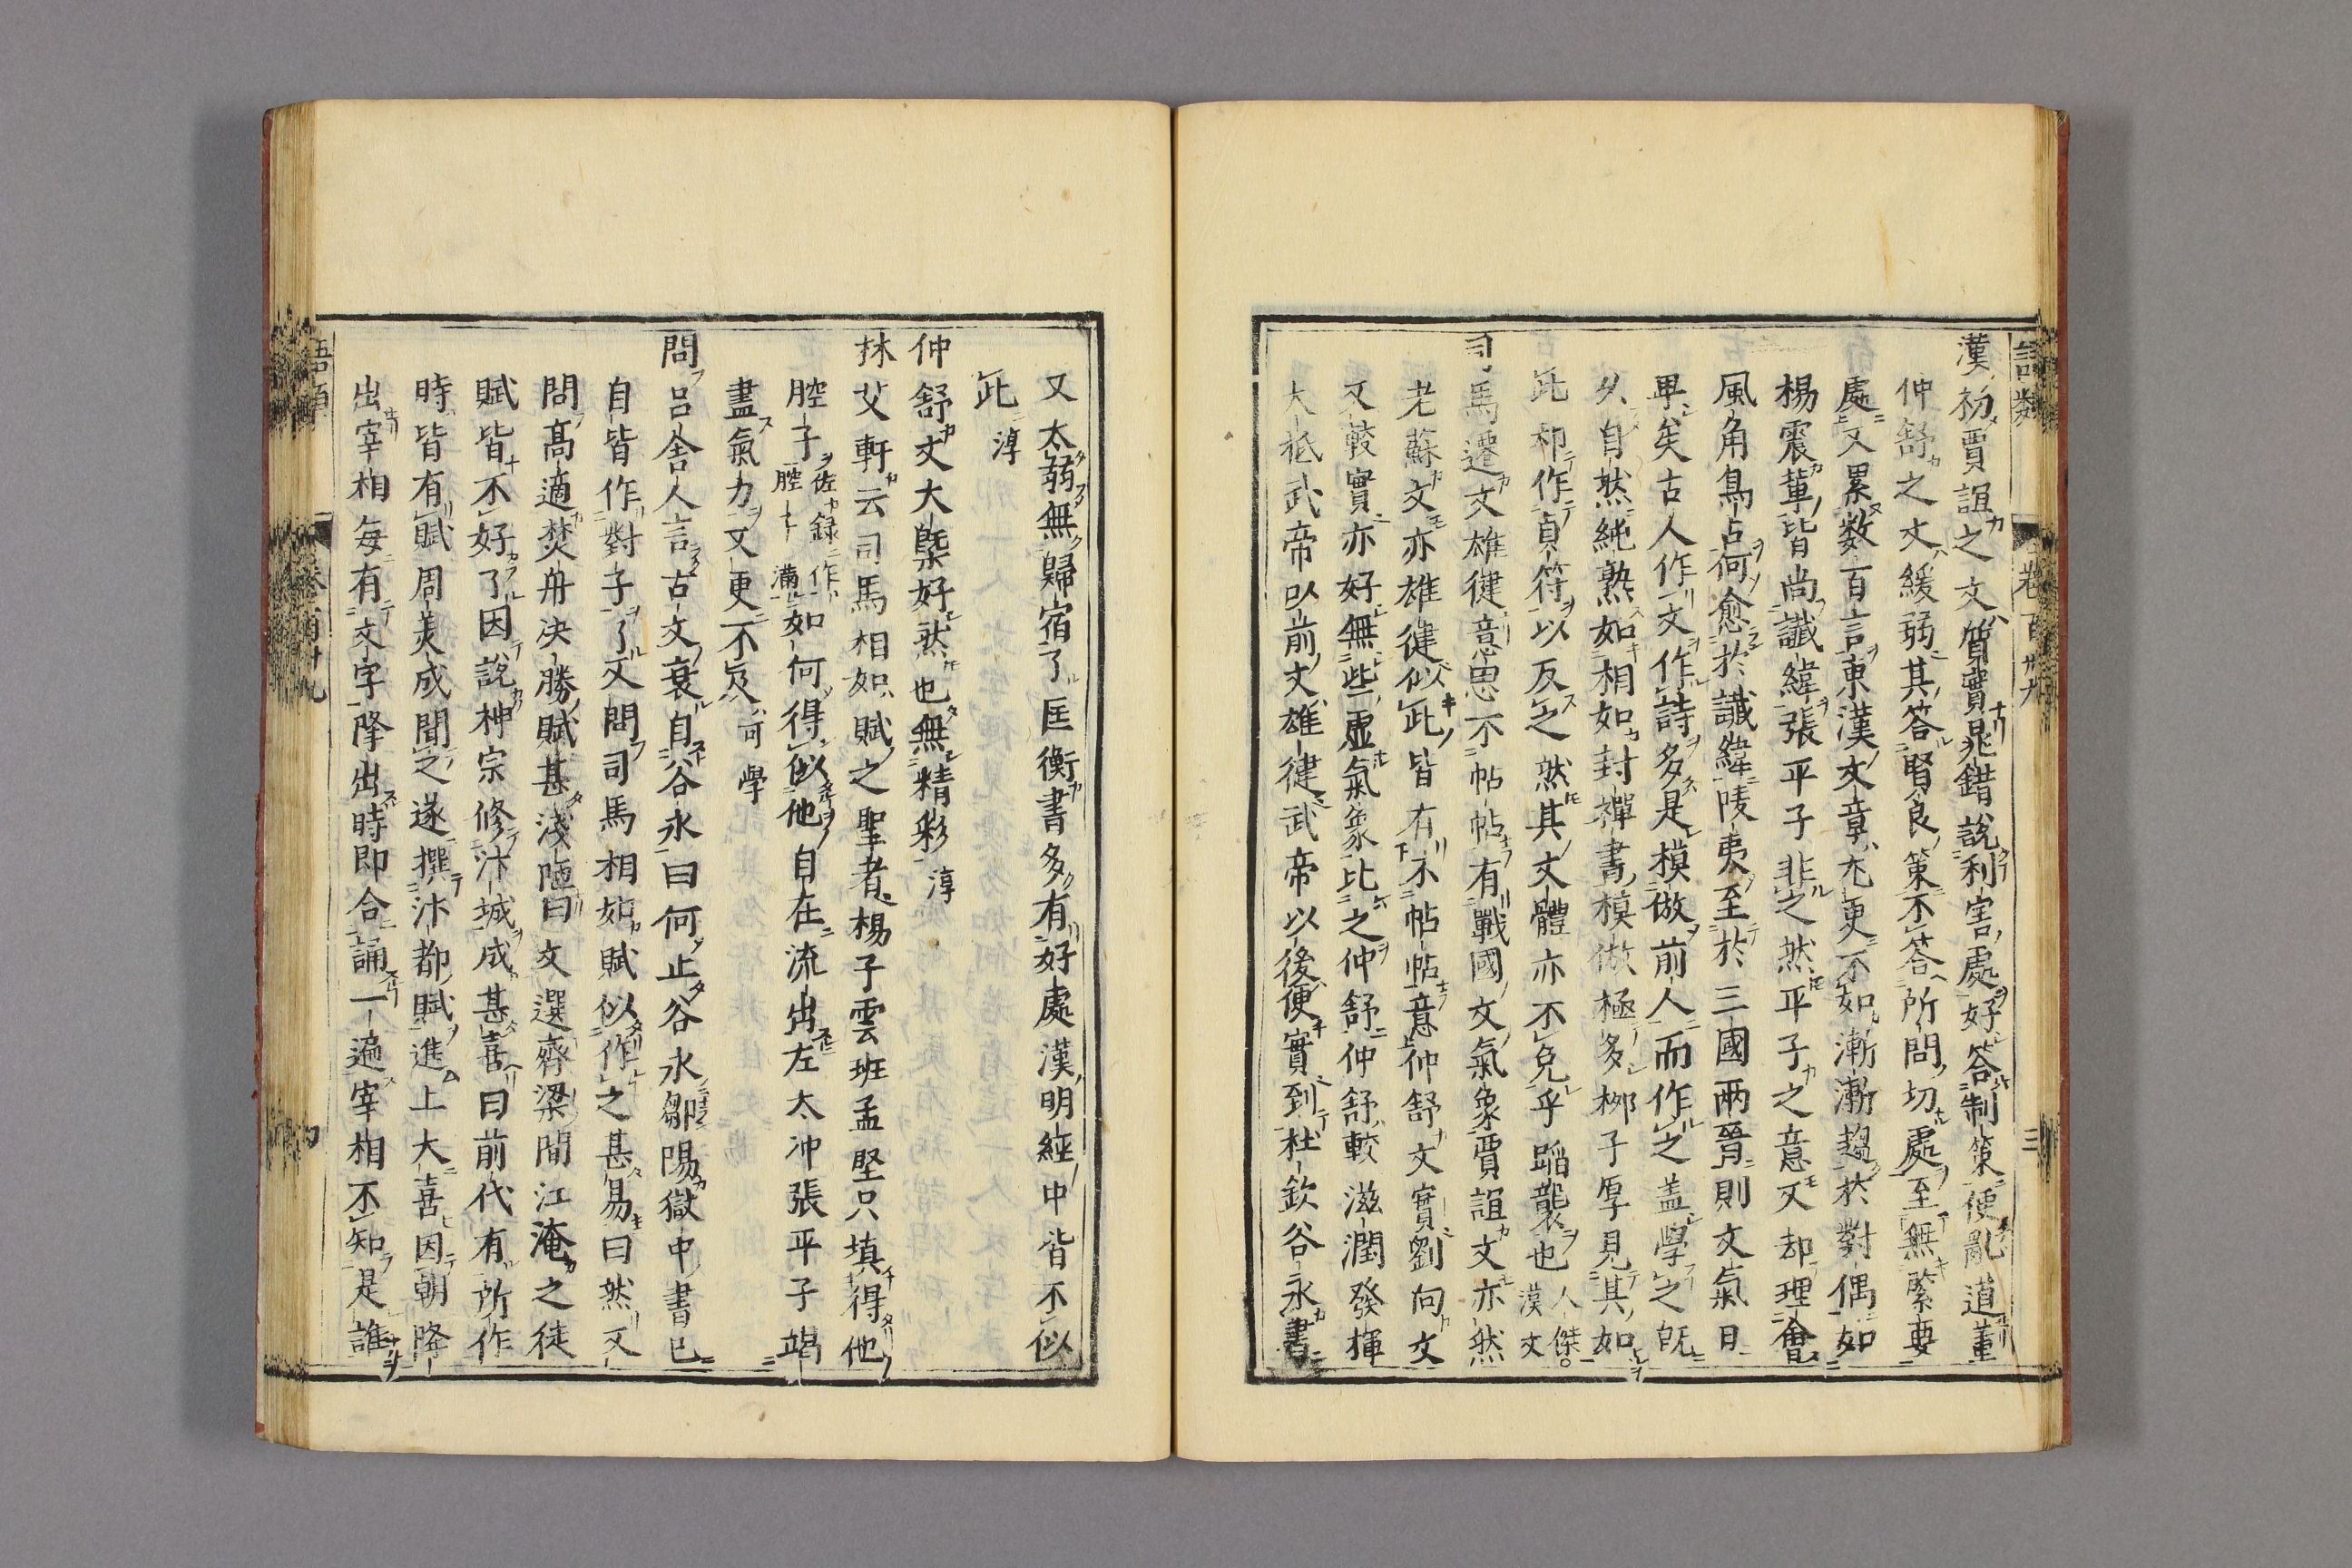 漢初賈誼之文質實晁錯說利害處好答制策便亂道董
仲舒之文緩弱其答賢良策不答所問切處至無緊要
處又累数百言東漢文章尤更不如漸漸趨於對偶如
楊震輩皆尚讖緯張平子非之然平子之意又却理會
風角鳥占何愈於讖緯陵夷至於三國兩晉則文氣日
卑矣古人作文作詩多是模倣前人而作之盖學之旣
久自然純熟如相如封禪書模倣極多柳子厚見其如
此却作貞符以反之然其文體亦不免乎蹈襲也人傑。漢文
司馬遷文雄健意思不帖帖有戰國文氣象賈誼文亦然
老蘇文亦雄健似此皆有不帖帖意仲舒文實劉向文
又較實亦好無些虛氣象比之仲舒仲舒較滋潤發揮
大抵武帝以前文雄健武帝以後便實到杜欽谷永書
又太弱無歸宿了匡衡書多有好處漢明經中皆不似
此淳
仲舒文大槩好然也無精彩淳
林艾軒云司馬相如賦之聖者楊子雲班孟堅只填得他
腔子佐録作腔子滿如何得似他自在流出左太冲張平子竭
盡氣力又更不及可學
問呂舍人言古文衰自谷永曰何止谷永鄒陽獄中書已
自皆作對子了又問司馬相如賦似作之甚易曰然又
問高適焚舟決勝賦甚淺陋曰文選齊梁間江淹之徒
賦皆不好了因說神宗修汴城成甚喜曰前代有所作
時皆有賦周美成聞之遂撰汴都賦進上大喜因朝降
出宰相每有文字降出時即合誦一遍宰相不知是誰